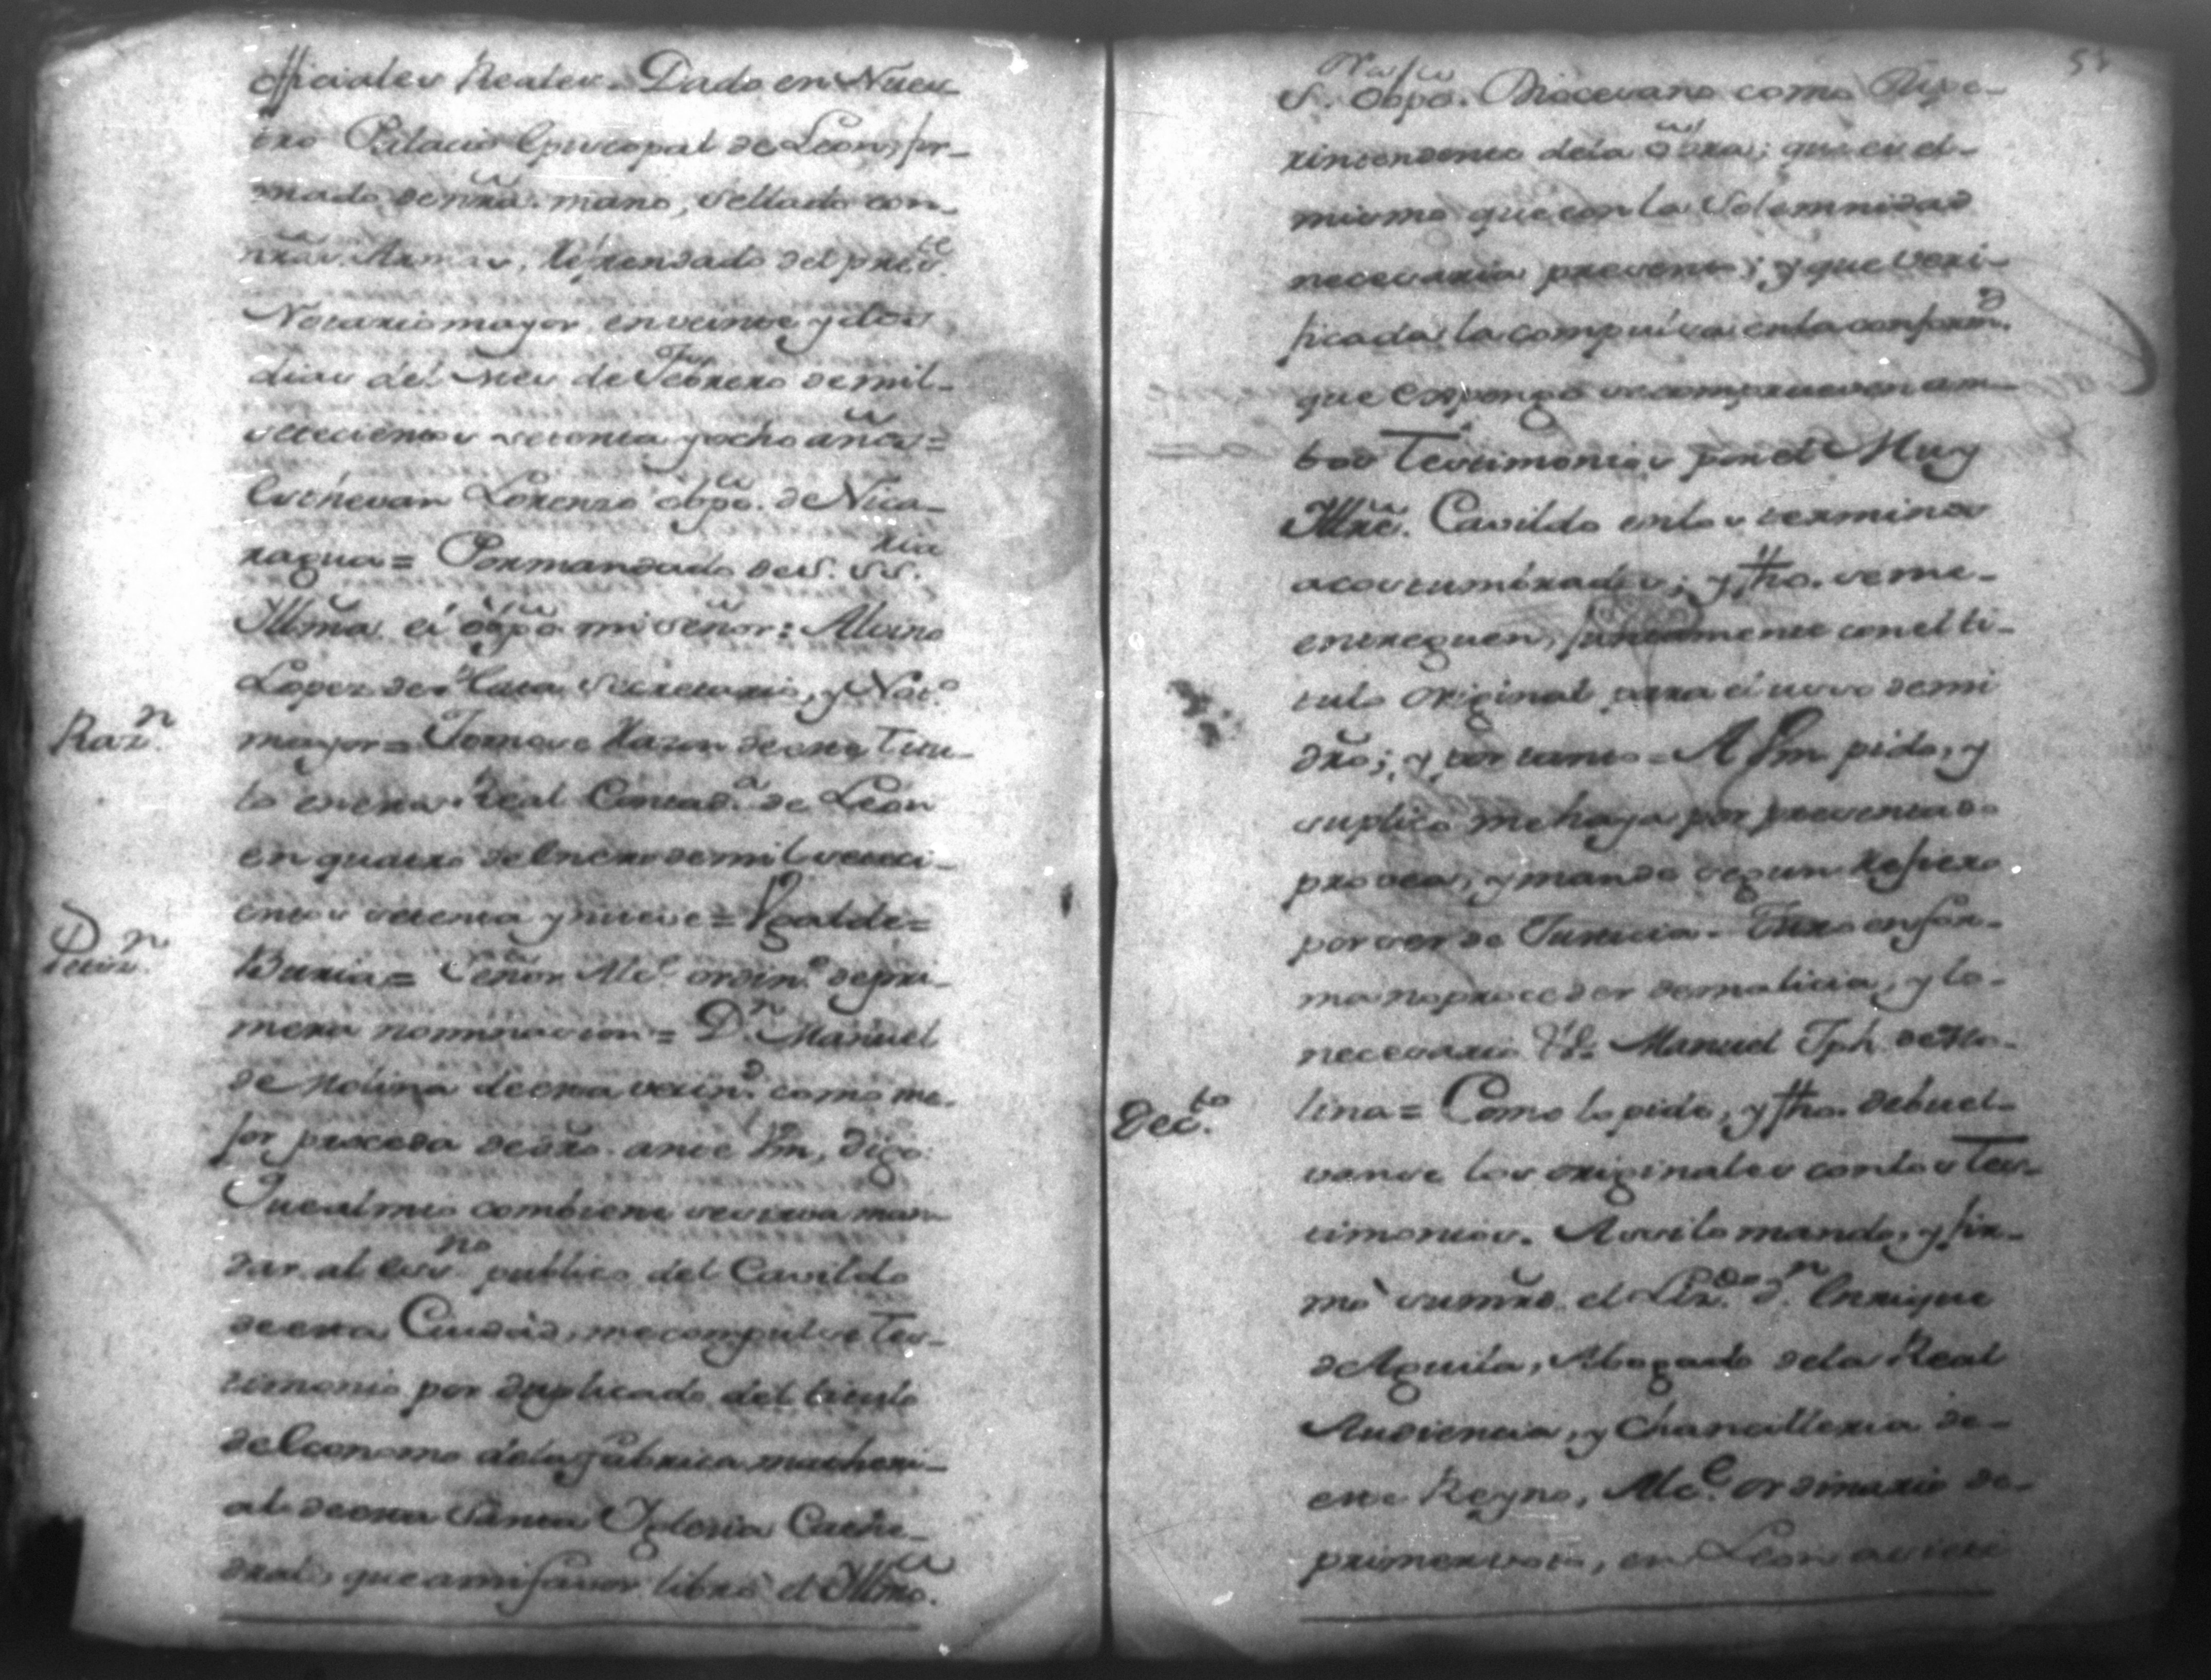 officiales Reales. Dado en Nues
tro Palacio Episcopal de Leon, fir-
mado de nra. mano, sellado con
nras. Armas, Refrendado del preste.
Notario mayor, en veinte y dos
dias del mes de Febrero de mil
setecientos setenta y ocho años =
Esthevan Lorenzo obpo. de Nica-
ragua = Por mandado de S. Sria.
Illma. el obpo mi señor: Alvino
Lopez de Plata, Secretario, y Noto.
Razn.
mayor = Tomose Razon de este titu-
lo en esta Real Contada. de León
en quatro de Enero de mil setesi-
entos setenta y nueve = Ugalde =
Petizn.
Buria = Señor Alce. ordino. de pri-
mera nominacion = Dn. Manuel
de Molina de esta vecind. como me-
jor proceda de dro. ante Vm, digo:
Que al mio combiene se sirva man
dar al essno. publico del Cavildo
de esta Ciudad, me compulse tes-
timonio por duplicado del titulo
de Economo de la fabrica matheri-
al de esta Santa Yglesia Cathe-
dral, que a mi favor libró el Illmo.
S. obpo. Diocesano como Supe-
rintendente de la obra; que es el
mismo que con la Solemnidad
necesaria presento; y que veri-
ficada la compulsa en la conformd.
que expongo se comprueven am-
bos Testimonios por el Muy
Illtre. Cavildo en los terminos
acostumbrados; y fho. se me
entreguen, juntamente con el ti-
tulo original para el uso de mi
dro; y por tanto = A Vm pido, y
suplico me haya por presentado
provea, y mande segun Refiero
por ser de Justicia. Juro en for-
ma no proceder de malicia, y lo
necesario &a. Manuel Jph. de Mo-
Decto.
lina = Como lo pide, y fho. debuel-
vanse los originales con los Tes-
timonios. Assi lo mando, y fir-
mó sumrd. el Lizdo. dn. Enrique
de Aguila, Abogado de la Real
Audiencia, y Chancilleria de
este Reyno, Alce. ordinario de
primer voto, en Leon a siete